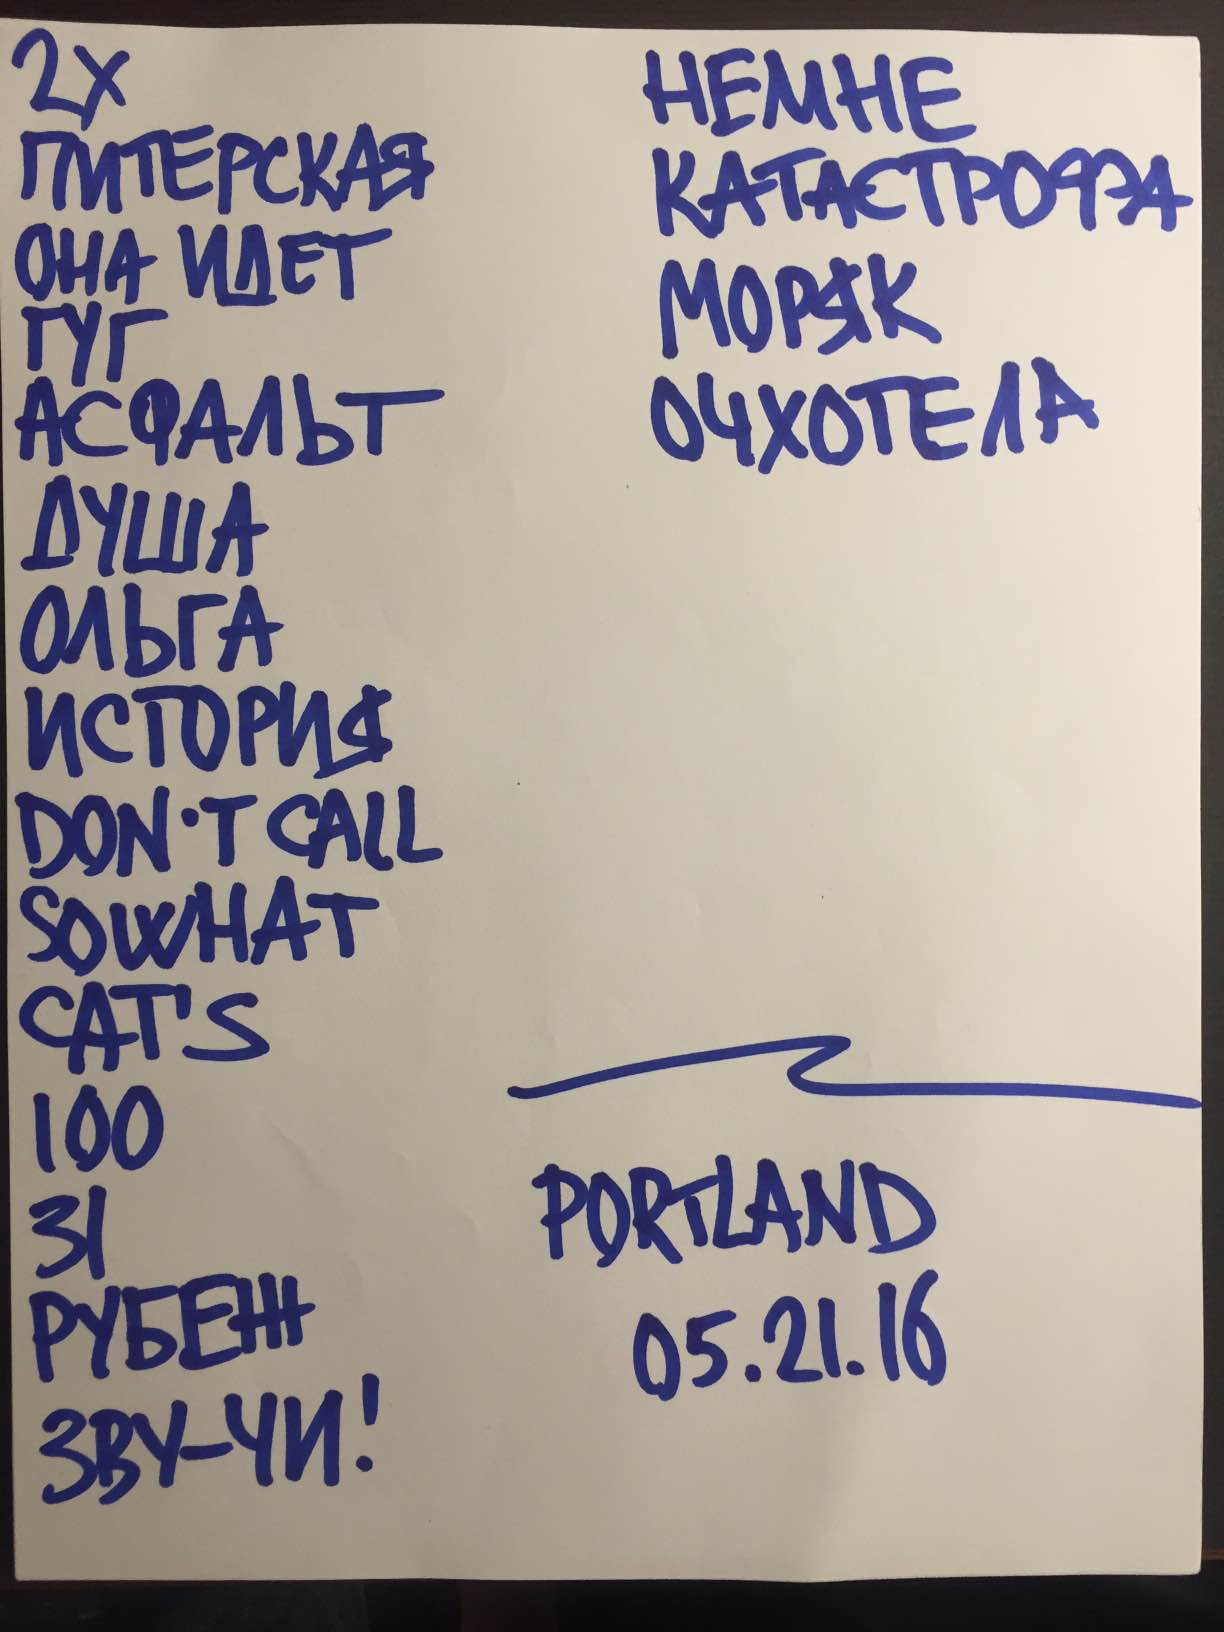 2X
ПИТЕРСКАЯ
ОНА ИДЕТ
ГУГ
АСФАЛЬТ
ДУША
ОЛЬГА
ИСТОРИЯ
DON'T CALL
SOWHAT
CAT'S
100
31
РУБЕЖ
ЗВУ-ЧИ!
НЕМНЕ
КАТАСТРОФА
МОРЯК
ОЧХОТЕЛА
PORTLAND
05.21.16